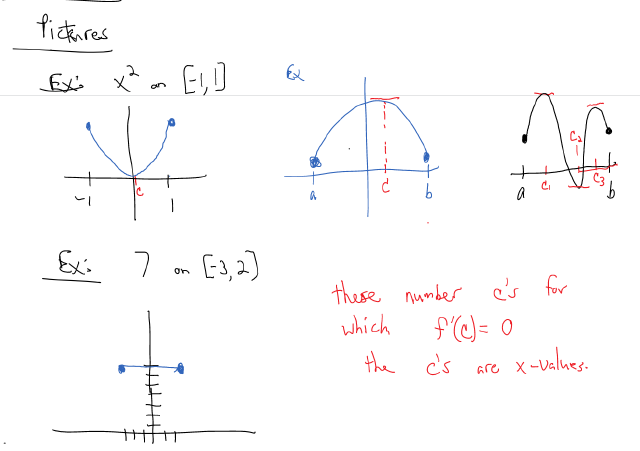 Pictures
Ex: x² on [-1,1]
-1
c
1
Ex
a
c
b
a
c₁
c₂
c₃
b
Ex: 7 on [-3,2]
these number c's for
which f'(c) = 0
the c's are x-values.